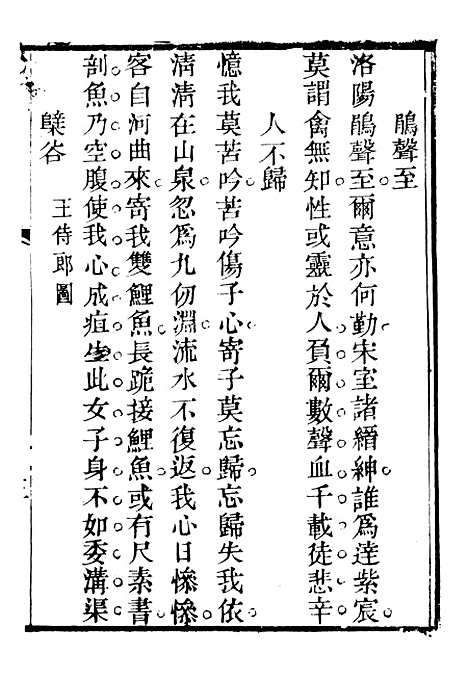 鵑聲至
洛陽鵑聲至爾意亦何勤宋室諸縉紳誰為達紫宸
莫謂禽無知性或靈於人負爾數聲血千載徒悲辛
人不歸
憶我莫苦吟苦吟傷子心寄子莫忘歸忘歸失我依
淸淸在山泉忽為九仞淵流水不復返我心日慘慘
客自河曲來寄我雙鯉魚長跪接鯉魚或有尺素書
剖魚乃空腹使我心成疽生此女子身不如委溝渠
檗谷
王侍郎圖